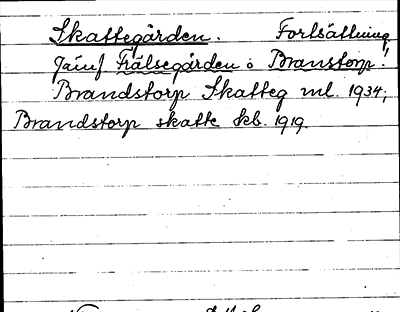 Skattegården. Fortsättning
Jämf Frälsegården o Branstorp!
Brandstorp Skatteg ml. 1934;
Brandstorp skatte kb. 1919.